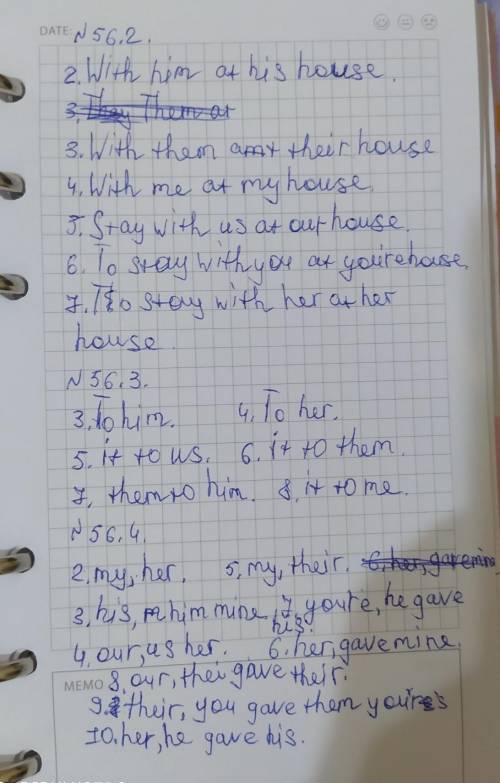 DATE:
N 56.2.
2. With him at his house.
3. They Them at
3. With them at their house
4. With me at my house.
5. Stay with us at our house.
6. To stay with you at youre house.
7. To stay with her at her
house.
N 56.3.
3. To him. 4. To her.
5. it to us. 6. it to them.
7, them to him. 8. it to me.
N 56.4.
2. my, her. 5, my, their. 6, her, gave mine
3, his, him mine, 7, youre, he gave
his.
4, our, us her. 6. her, gave mine.
MEMO 8. our, thei gave their.
9. their, you gave them yours
10. her, he gave his.